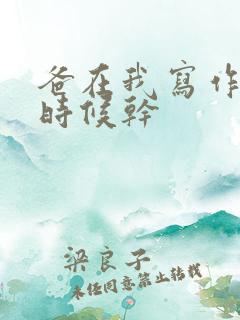 爸在我寫作
時候幹
梁良子
未经同意禁止转载